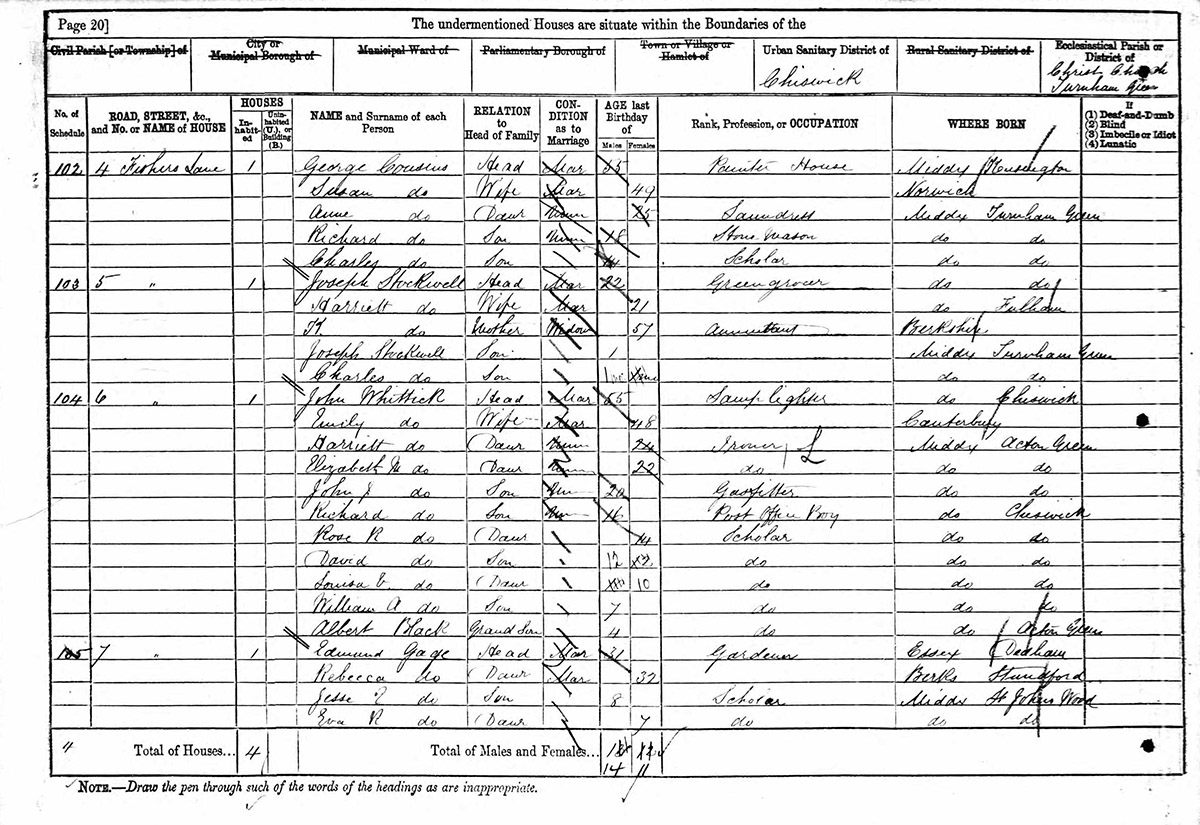 Page 20] The undermentioned Houses are situate within the Boundaries of the
Civil Parish [or Township] of City or Municipal Borough of Municipal Ward of Parliamentary Borough of Town or Village or Hamlet of Urban Sanitary District of Rural Sanitary District of Ecclesiastical Parish or District of
Chiswick Christ Church Turnham Green
No. of Schedule ROAD, STREET, &c., and No. or NAME of HOUSE HOUSES In-habit-ed Unin-habited (U.), or Building (B.) NAME and Surname of each Person RELATION to Head of Family CON-DITION as to Marriage AGE last Birthday of Males Females Rank, Profession, or OCCUPATION WHERE BORN If (1) Deaf-and-Dumb (2) Blind (3) Imbecile or Idiot (4) Lunatic
102 4 Fishers Lane 1 George Cousins Head Mar 55 Painter House Middx Kensington
Susan do Wife Mar 49 Norwich
Anne do Daur Unm 25 Laundress Middx Turnham Green
Richard do Son Unm 18 Stone Mason do do
Charles do Son 14 Scholar do do
103 5 " 1 Joseph Stockwell Head Mar 22 Greengrocer do do
Harriett do Wife Mar 21 do Fulham
do Mother Widow 57 Annuitant Berkshire
Joseph Stockwell Son 1 Middx Turnham Green
Charles do Son do do
104 6 " 1 John Whittick Head Mar 55 Lamplighter do Chiswick
Emily do Wife Mar 48 Canterbury
Harriett do Daur Unm 24 Ironer L Middx Acton Green
Elizabeth M do Daur Unm 22 do do do
John J do Son Un 20 Gasfitter do do
Richard do Son Un 16 Post Office Boy do Chiswick
Rose R do Daur 14 Scholar do do
David do Son 12 do do do
Louisa E do Daur 10 do do do
William A do Son 7 do do do
Albert Black Grand Son 4 do do Acton Green
105 7 " 1 Edmund Gage Head Mar 31 Gardener Essex Dedham
Rebecca do Daur Mar 32 Berks
Jesse E do Son 8 Scholar Middx St Johns Wood
Eva R do Daur 7 do do do
4 Total of Houses... 4 Total of Males and Females... 12
14 11
NOTE.—Draw the pen through such of the words of the headings as are inappropriate.